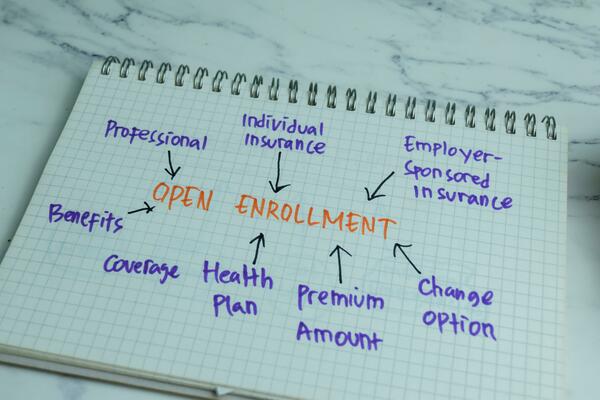 Professional
Individual
Insurance
Employer-
Sponsored
Insurance
OPEN ENROLLMENT
Benefits
Coverage
Health
Plan
Premium
Amount
Change
Option